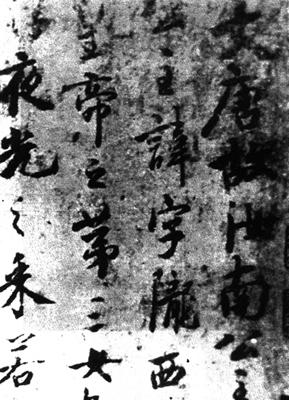 大唐故汝南公主
公主諱字隴西
皇帝之第三女
夜光之采若